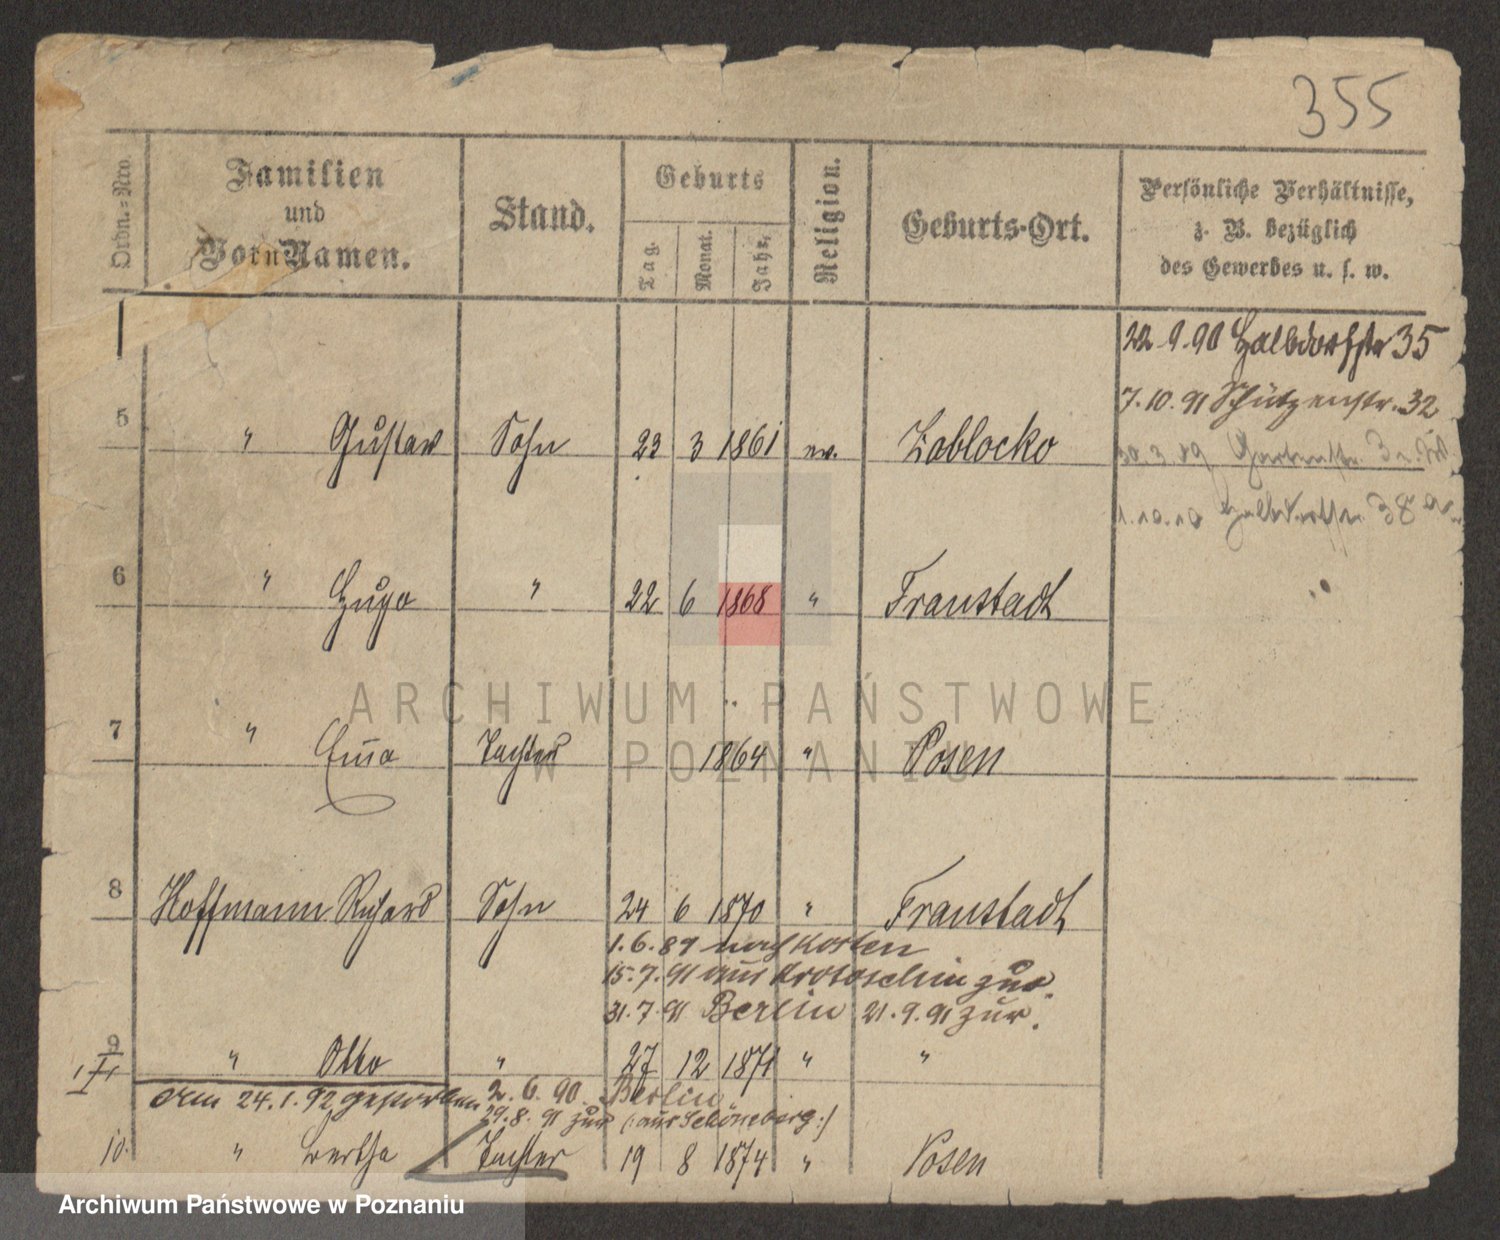 355
Ordn.-Nro.
Familien
und
Vor-Namen.
Stand.
Geburts
Tag.
Monat.
Jahr.
Religion.
Geburts-Ort.
Persönliche Verhältnisse,
z. B. bezüglich
des Gewerbes u. s. w.
22.9.90 Halbdorfstr 35
7.10.91 Schützenstr. 32
5 " Gustav Sohn 23 3 1861 ev. Zablocko
30.3.09 Gartenstr.
1.10.10 Halbdorfstr. 38
6 " Hugo " 22 6 1868 " Fraustadt
7 " Ema Tochter 1864 " Posen
8 Hoffmann Richard Sohn 24 6 1870 " Fraustadt
1.6.89 nach Kosten
15.7.91 aus Krotoschin zur.
31.7.91 Berlin 21.9.91 zur.
9 " Otto " 27 12 1871 " "
am 24.1.92 gestorben
2.6.90. Berlin
29.8.91 zur (: aus Schöneberg :)
10. " Bertha Tochter 19 8 1874 " Posen
ARCHIWUM PAŃSTWOWE
W POZNANIU
Archiwum Państwowe w Poznaniu